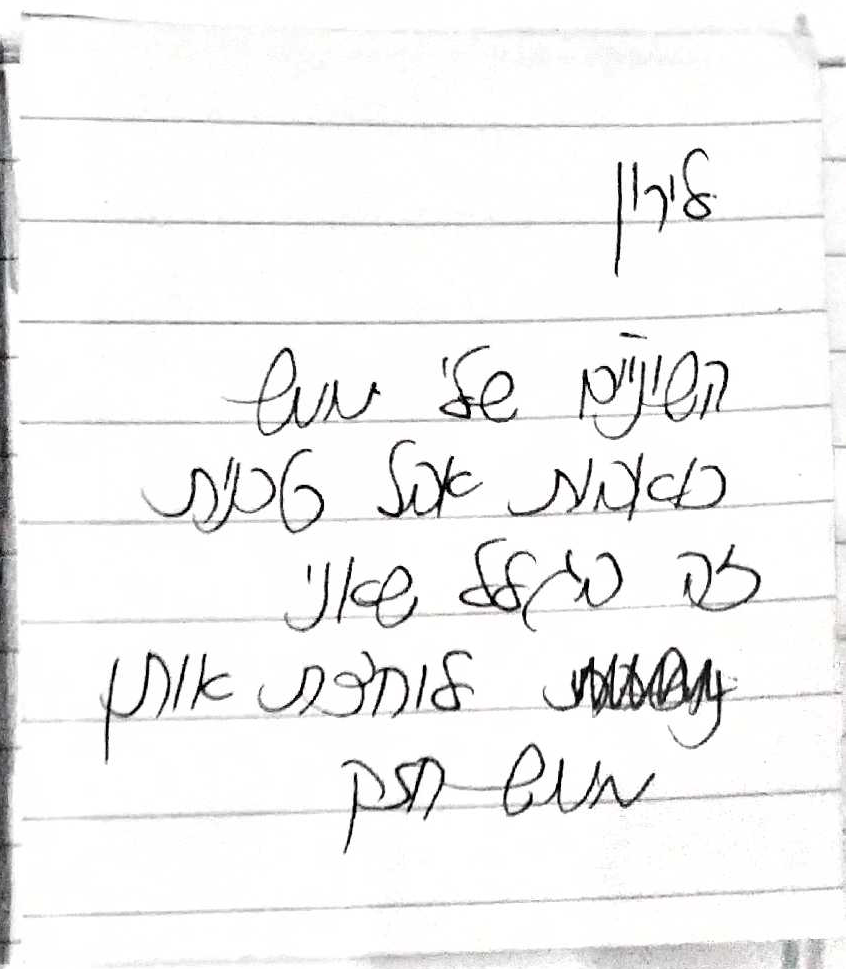 לירון
השיניים שלי ממש
כואבות אבל טכנית
זה בגלל שאני
לוחצת אותן
ממש חזק